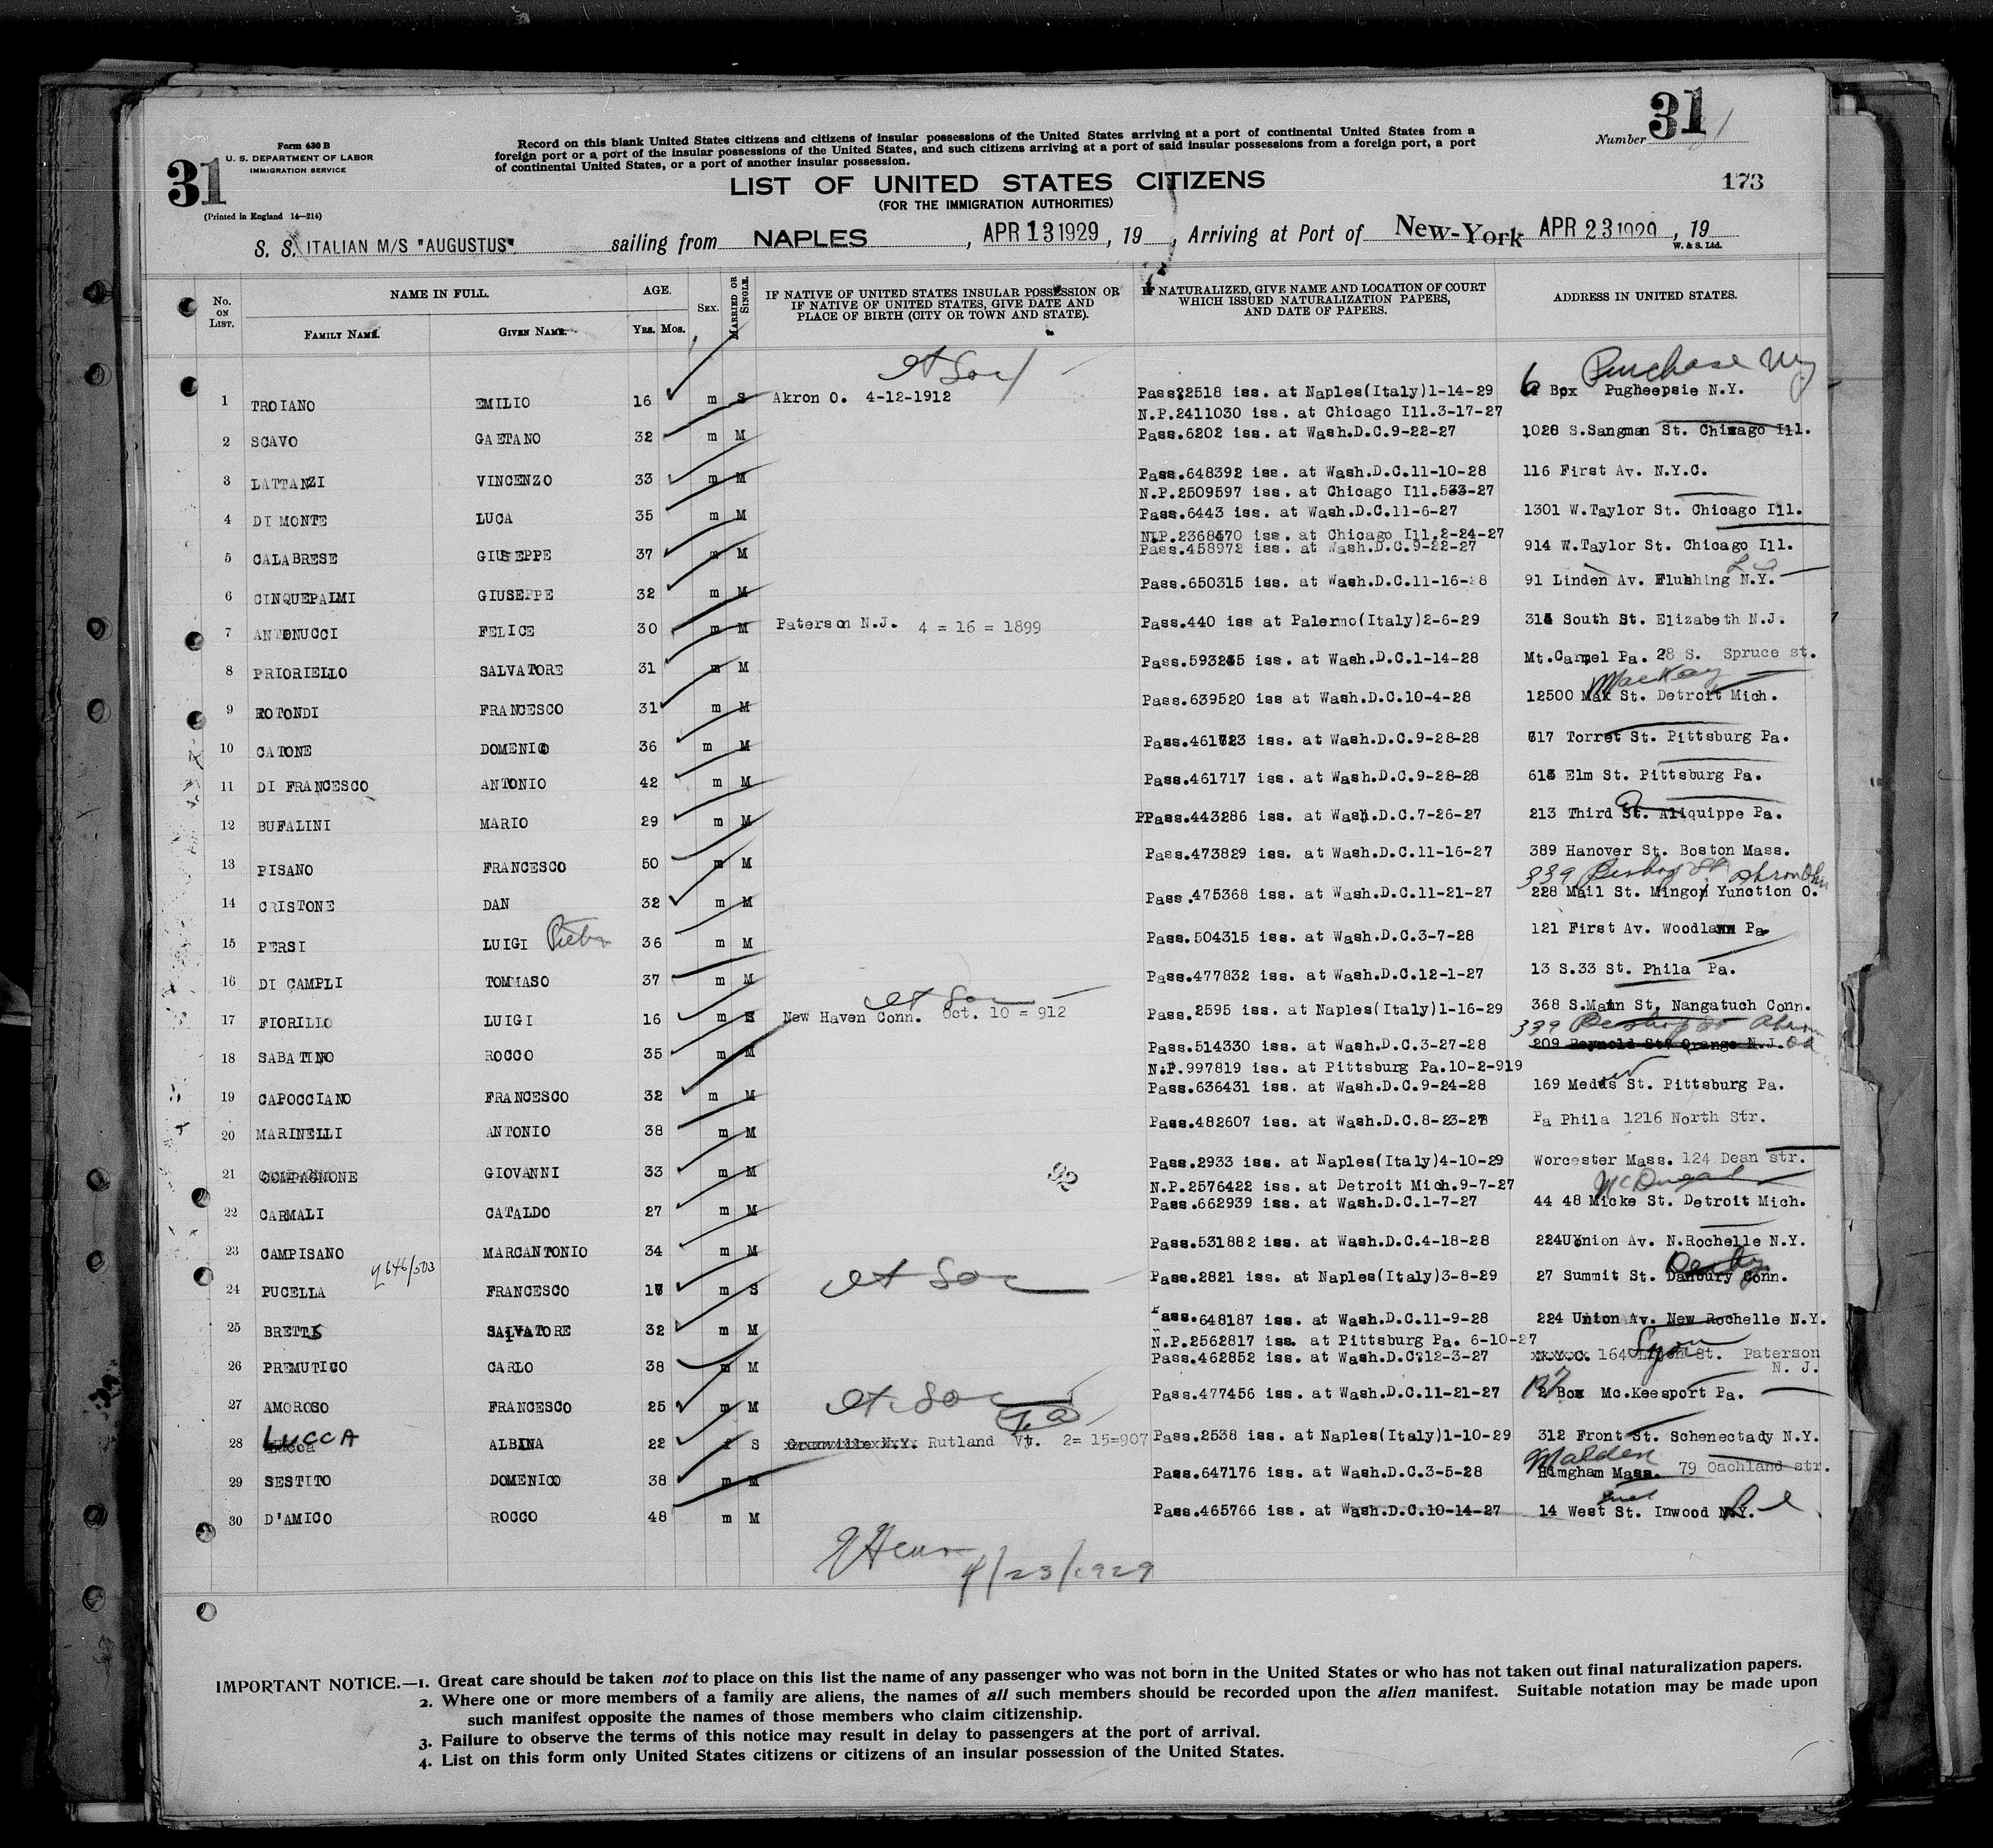 31
Number 31
173
Form 630 B
U. S. DEPARTMENT OF LABOR
IMMIGRATION SERVICE
31
(Printed in England 14—214)
Record on this blank United States citizens and citizens of insular possessions of the United States arriving at a port of continental United States from a
foreign port or a port of the insular possessions of the United States, and such citizens arriving at a port of said insular possessions from a foreign port, a port
of continental United States, or a port of another insular possession.
LIST OF UNITED STATES CITIZENS
(FOR THE IMMIGRATION AUTHORITIES)
S. S. ITALIAN M/S "AUGUSTUS" sailing from NAPLES, APR 13 1929, 19 , Arriving at Port of New-York APR 23 1929, 19
W. & S. Ltd.
No. on List. NAME IN FULL. AGE. Sex. MARRIED OR SINGLE. IF NATIVE OF UNITED STATES INSULAR POSSESSION OR IF NATIVE OF UNITED STATES, GIVE DATE AND PLACE OF BIRTH (CITY OR TOWN AND STATE). IF NATURALIZED, GIVE NAME AND LOCATION OF COURT WHICH ISSUED NATURALIZATION PAPERS, AND DATE OF PAPERS. ADDRESS IN UNITED STATES.
FAMILY NAME. GIVEN NAME. YRS. MOS.
Purchase
1 TROIANO EMILIO 16 m S Akron O. 4-12-1912 Pass.2518 iss. at Naples(Italy)1-14-29 6 Box Pugheepsie N.Y.
N.P.2411030 iss. at Chicago Ill.3-17-27
2 SCAVO GAETANO 32 m M Pass.6202 iss. at Wash.D.C.9-22-27 1028 S.Sangman St. Chicago Ill.
3 LATTANZI VINCENZO 33 m M Pass.648392 iss. at Wash.D.C.11-10-28 116 First Av. N.Y.C.
N.P.2509597 iss. at Chicago Ill.
4 DI MONTE LUCA 35 m M Pass.6443 iss. at Wash.D.C.11-6-27 1301 W.Taylor St. Chicago Ill.
iss. at Chicago Ill.2-24-27
5 CALABRESE GIUSEPPE 37 m M Pass.458972 iss. at Wash.D.C.9-22-27 914 W.Taylor St. Chicago Ill.
6 CINQUEPALMI GIUSEPPE 32 m M Pass.650315 iss. at Wash.D.C.11-16-28 91 Linden Av. Flushing N.Y.
7 ANTONUCCI FELICE 30 m M Paterson N.J. 4 = 16 = 1899 Pass.440 iss at Palermo(Italy)2-6-29 South St. Elizabeth N.J.
8 PRIORIELLO SALVATORE 31 m M iss. at Wash.D.C.1-14-28 Mt.Carmel Pa. 28 S. Spruce st.
MacKay
9 ROTONDI FRANCESCO 31 m M Pass.639520 iss at Wash.D.C.10-4-28 12500 Mak St. Detroit Mich.
10 CATONE DOMENICO 36 m M iss. at Wash.D.C.9-28-28 617 Torret St. Pittsburg Pa.
11 DI FRANCESCO ANTONIO 42 m M Pass.461717 iss. at Wash.D.C.9-28-28 Elm St. Pittsburg Pa.
12 BUFALINI MARIO 29 m M PPass.443286 iss. at Wash.D.C.7-26-27 213 Third St. Aliquippe Pa.
13 PISANO FRANCESCO 50 m M Pass.473829 iss. at Wash.D.C.11-16-27 389 Hanover St. Boston Mass.
339 Bishop St Akron Ohio
14 CRISTONE DAN 32 m M Pass.475368 iss. at Wash.D.C.11-21-27 228 Mail St. Mingo Yunction O.
15 PERSI LUIGI 36 m M Pass.504315 iss. at Wash.D.C.3-7-28 121 First Av. Woodlawn Pa
16 DI CAMPLI TOMMASO 37 m M Pass.477832 iss. at Wash.D.C.12-1-27 13 S.33 St. Phila Pa.
17 FIORILLO LUIGI 16 m S New Haven Conn. Oct. 10 = 912 Pass.2595 iss. at Naples(Italy)1-16-29 368 S.Main St, Nangatuch Conn.
339 Bishop St Akron
18 SABATINO ROCCO 35 m M Pass.514330 iss. at Wash.D.C.3-27-28 209 Reynold St. Orange N.J.
N.P.997819 iss. at Pittsburg Pa.10-2-919
19 CAPOCCIANO FRANCESCO 32 m M Pass.636431 iss. at Wash.D.C.9-24-28 169 St. Pittsburg Pa.
20 MARINELLI ANTONIO 38 m M Pass.482607 iss. at Wash.D.C. Pa Phila 1216 North Str.
21 COMPAGNONE GIOVANNI 33 m M Pass.2933 iss. at Naples(Italy)4-10-29 Worcester Mass. 124 Dean str.
N.P.2576422 iss. at Detroit Mich.9-7-27 McDugal
22 CARMALI CATALDO 27 m M Pass.662939 iss. at Wash.D.C.1-7-27 44 48 Micke St. Detroit Mich.
23 CAMPISANO MARCANTONIO 34 m M Pass.531882 iss. at Wash.D.C.4-18-28 224 Union Av. N.Rochelle N.Y.
24 PUCELLA FRANCESCO m S Pass.2821 iss. at Naples(Italy)3-8-29 27 Summit St. Danbury Conn.
25 BRETTI SALVATORE 32 m M Pass.648187 iss. at Wash.D.C.11-9-28 224 Union Av. New Rochelle N.Y.
N.P.2562817 iss. at Pittsburg Pa. 6-10-27
26 PREMUTICO CARLO 38 m M Pass.462852 iss. at Wash.D.C.12-3-27 164 St. Paterson
N. J.
27 AMOROSO FRANCESCO 25 m M Pass.477456 iss. at Wash.D.C.11-21-27 Box Mc.Keesport Pa.
28 LUCCA ALBINA 22 f S Granville N.Y. Rutland Vt. 2= 15=907 Pass.2538 iss. at Naples(Italy)1-10-29 312 Front St. Schenectady N.Y.
Malden
29 SESTITO DOMENICO 38 m M Pass.647176 iss. at Wash.D.C.3-5-28 Himgham Mass. 79 Oachland str.
30 D'AMICO ROCCO 48 m M Pass.465766 iss. at Wash.D.C.10-14-27 14 West St. Inwood N.Y.
4/23/1929
IMPORTANT NOTICE.—1. Great care should be taken not to place on this list the name of any passenger who was not born in the United States or who has not taken out final naturalization papers.
2. Where one or more members of a family are aliens, the names of all such members should be recorded upon the alien manifest. Suitable notation may be made upon
such manifest opposite the names of those members who claim citizenship.
3. Failure to observe the terms of this notice may result in delay to passengers at the port of arrival.
4. List on this form only United States citizens or citizens of an insular possession of the United States.